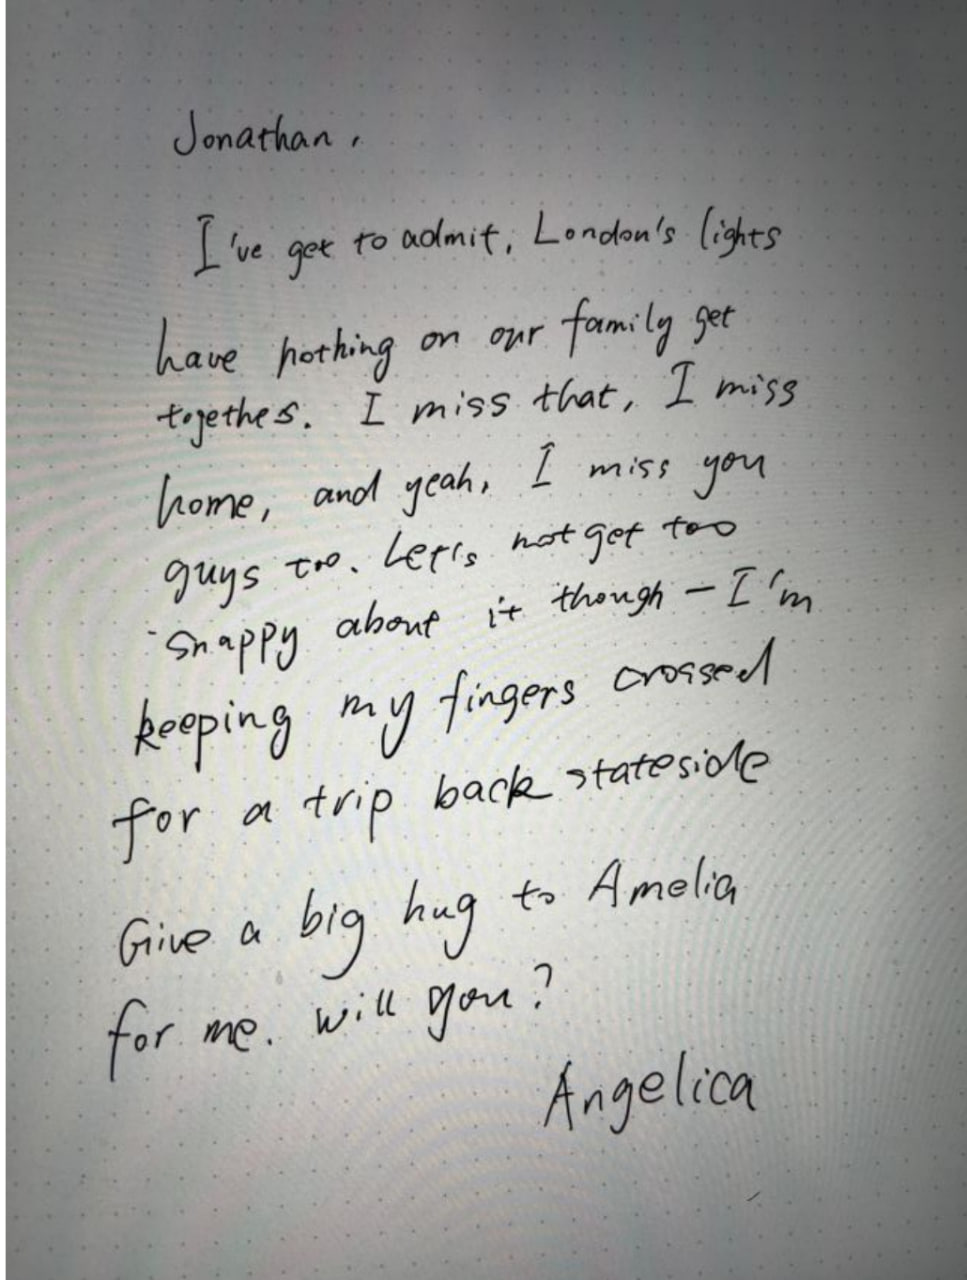 Jonathan,
I've get to admit, London's lights
have nothing on our family get
togethes. I miss that, I miss
home, and yeah, I miss you
guys too. Let's not get too
snappy about it though - I'm
keeping my fingers crossed
for a trip back stateside
Give a big hug to Amelia
for me. will you?
Angelica